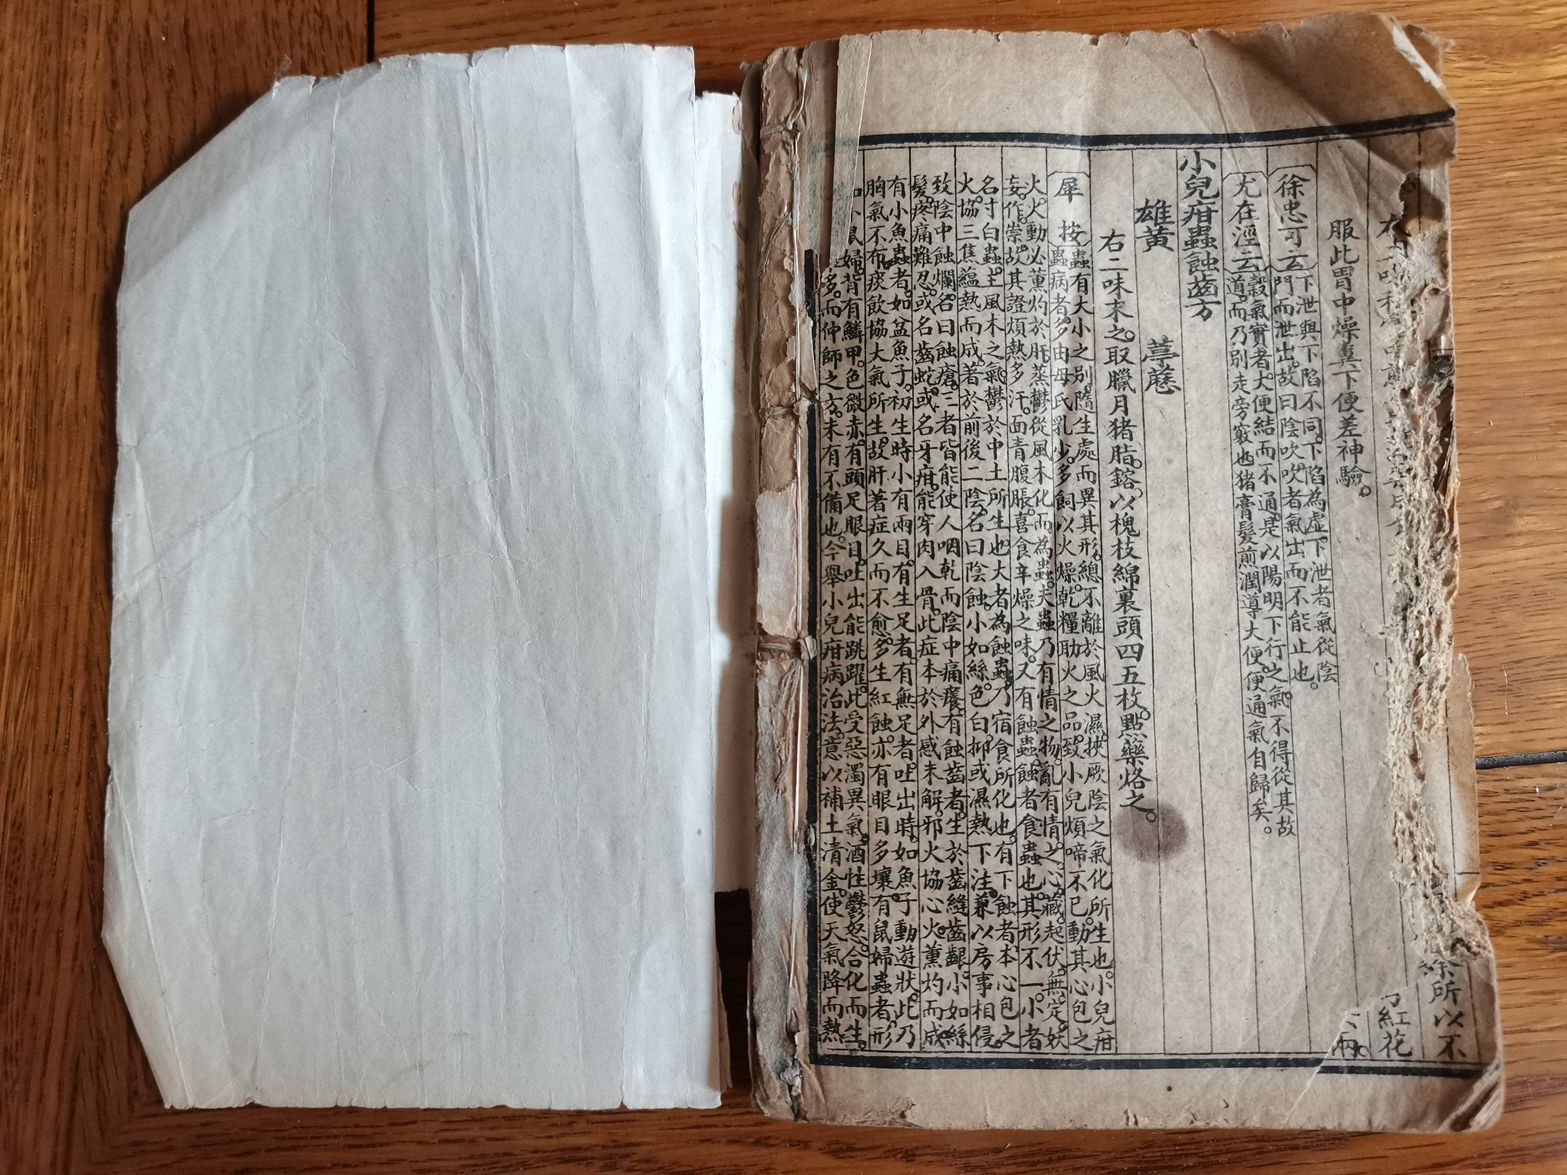 所以不
紅花
兩。
服此胃中燥糞下便差神驗。
徐忠可云 下泄與下陷不同。下陷為虛。下泄者氣從陰
門而泄出。故曰陰吹。吹者氣出而不能止也。
尤在涇云 穀氣實者。大便結而不通。是以陽明下行之氣。不得從其故
道。而乃別走旁竅也。猪膏髮煎潤導大便。便通氣自歸矣。
小兒疳蟲蝕齒方
雄黃 葶藶
右二味末之。取臘月猪脂。鎔。以槐枝綿裹頭四五枚。點藥烙之。
犀按 蟲有大小之別。隨生處而異其形。總不離於風火濕。挾厥陰之氣化所生也。小兒疳
蟲病者。多由母氏乳少。多飼以火燥乾糧助火之品。致小兒煩啼不已。動其心包之
火。火動必薰灼於肝。蒸鬱從風木化而為蟲。夫蟲乃有情之物。亂有情之心。藏起伏無定。妖
妄作祟。故其證煩熱多汗。面青腹脹。喜食辛燥之味。又有蝕蟲。蝕者食蟲也。其形不一。小者
名寸白蟲。主風木之氣鬱於中土所生也。大者為蝕蟲。乃宿食所化也。有下蝕者。本心包之
火。協三焦蘊熱而成。著於前後二陰。名曰陰蝕。小如絲。色白。抑或濕熱下注。兼以房事相侵。
致陰中蝕爛。名曰蝕瘡。三者皆能使人咽乾而陰中痛癢。有蝕齒者。生於齒縫齒齦。小如絲
髮。疼痛難忍。或名齒蛇。或名牙疳。能穿肉入骨。此症本於外感未解。邪火協心火薰灼而成。
有小魚蟲者。如盆魚子。初生時小有兩目。有生足者。有無足者。吐出時。如魚子動遊狀。此乃
胸氣不布。痰飲協大氣所生。故肝著症久而不愈。多生紅蝕。亦有眼目多壞。有鼠婦蟲者。形
婦。背有鱗甲。色微赤。有頭足眼目。吐出能跳躍。此受惡濁異氣。酒性鬱怒合化而生。
多。而仲師之方。未有不備也。今舉小兒疳病治法。意以補土清金。使天氣降而熱